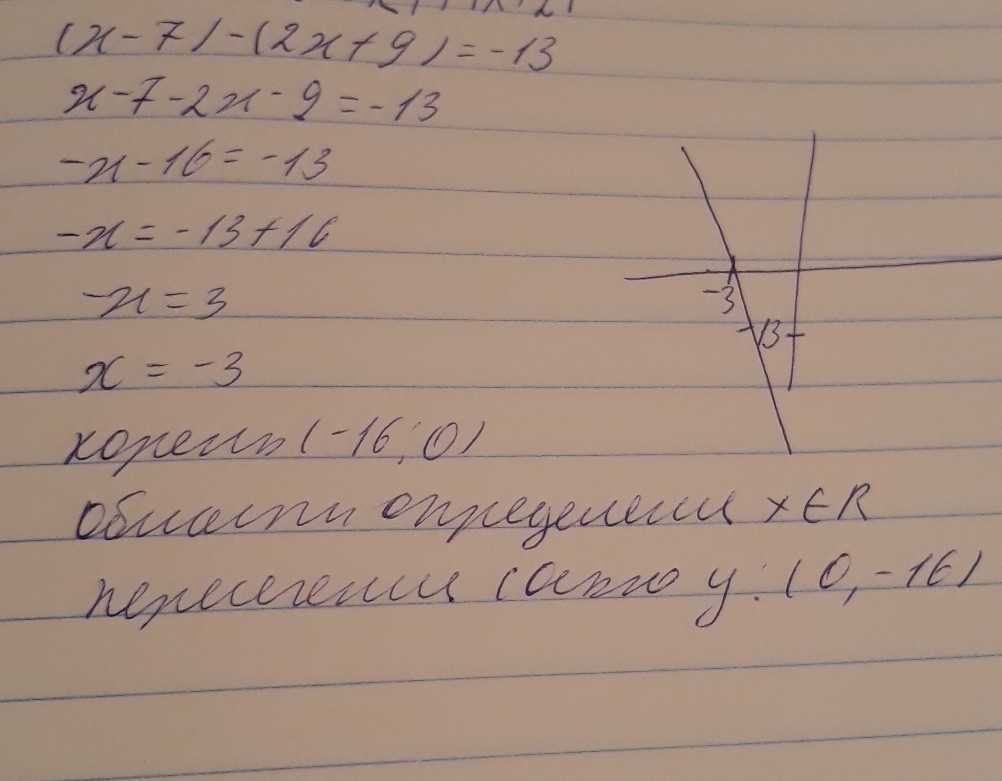 (x-7)-(2x+9)=-13
x-7-2x-9=-13
-x-16=-13
-x=-13+16
-x=3
x=-3
корень(-16;0)
Области определении x∈R
пересечении (осью y: (0,-16)
-3
-13